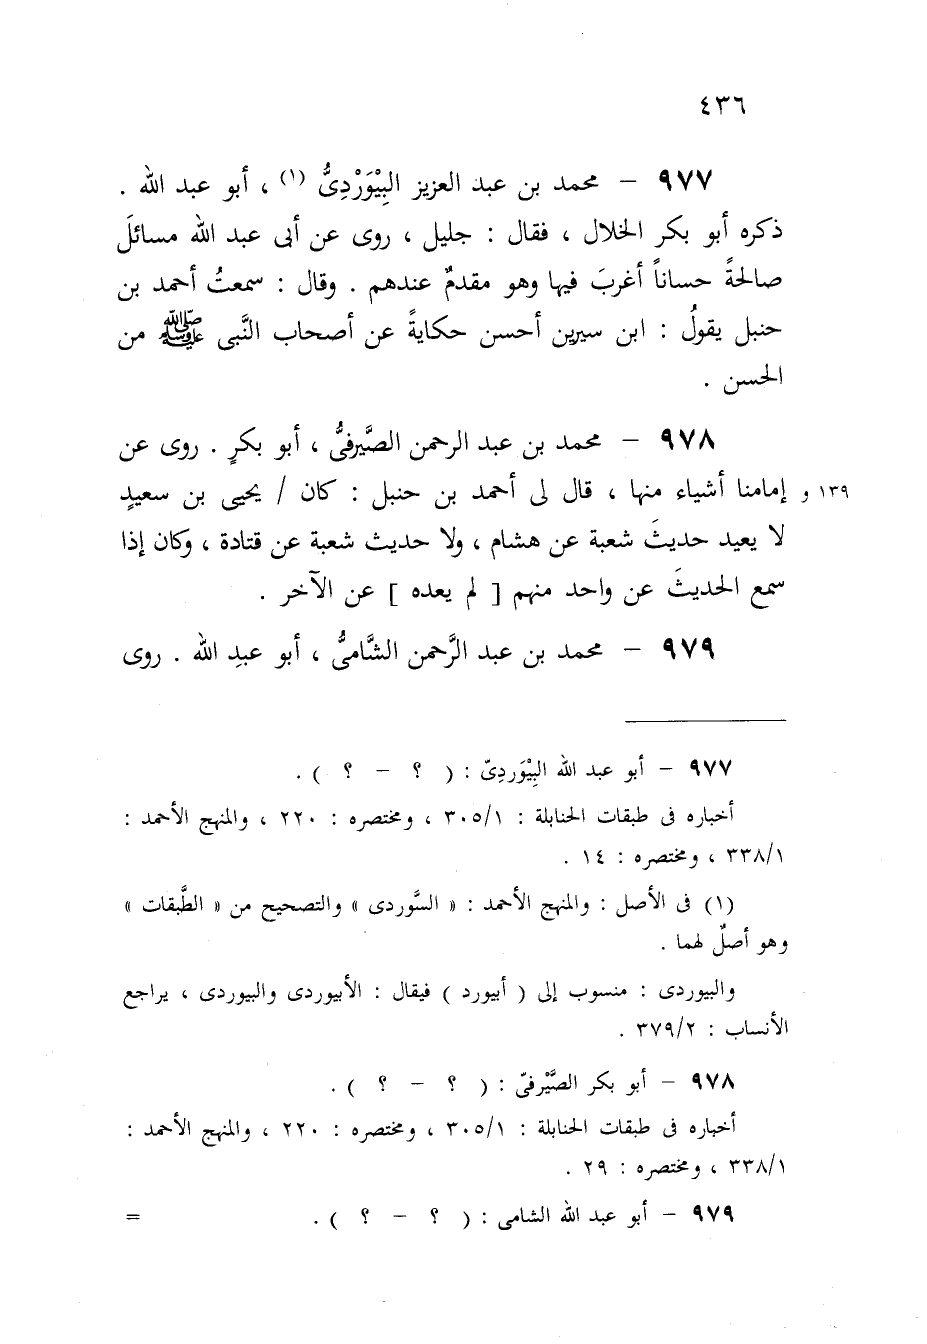 ٤٣٦
٩٧٧ – محمد بن عبد العزيز البِيْوَرْدِىُّ (١) ، أبو عبد الله .
ذكره أبو بكر الخلال ، فقال : جليل ، روى عن أبى عبد الله مسائلَ
صالحةً حساناً أغربَ فيها وهو مقدمٌ عندهم . وقال : سمعتُ أحمد بن
حنبل يقولُ : ابن سيرين أحسن حكايةً عن أصحاب النَّبى ﷺ من
الحسن .
٩٧٨ – محمد بن عبد الرحمن الصَّيرفىُّ ، أبو بكرٍ . روى عن
إمامنا أشياء منها ، قال لى أحمد بن حنبل : كان / يحيى بن سعيدٍ ١٣٩ و
لا يعيد حديثَ شعبة عن هشام ، ولا حديث شعبة عن قتادة ، وكان إذا
سمع الحديثَ عن واحد منهم [ لم يعده ] عن الآخر .
٩٧٩ – محمد بن عبد الرَّحمن الشَّامىُّ ، أبو عبدِ الله . روى
٩٧٧ – أبو عبد الله البِيْوَردِىّ : ( ؟ – ؟ ) .
أخباره فى طبقات الحنابلة : ٣٠٥/١ ، ومختصره : ٢٢٠ ، والمنهج الأحمد :
٣٣٨/١ ، ومختصره : ١٤ .
(١) فى الأصل : والمنهج الأحمد : « السَّوردى » والتصحيح من « الطَّبقات »
وهو أصلٌ لهما .
والبيوردى : منسوب إلى ( أبيورد ) فيقال : الأبيوردى والبيوردى ، يراجع
الأنساب : ٣٧٩/٢ .
٩٧٨ – أبو بكر الصَّيْرفىّ : ( ؟ – ؟ ) .
أخباره فى طبقات الحنابلة : ٣٠٥/١ ، ومختصره : ٢٢٠ ، والمنهج الأحمد :
٣٣٨/١ ، ومختصره : ٢٩ .
٩٧٩ – أبو عبد الله الشامى : ( ؟ – ؟ ) . =